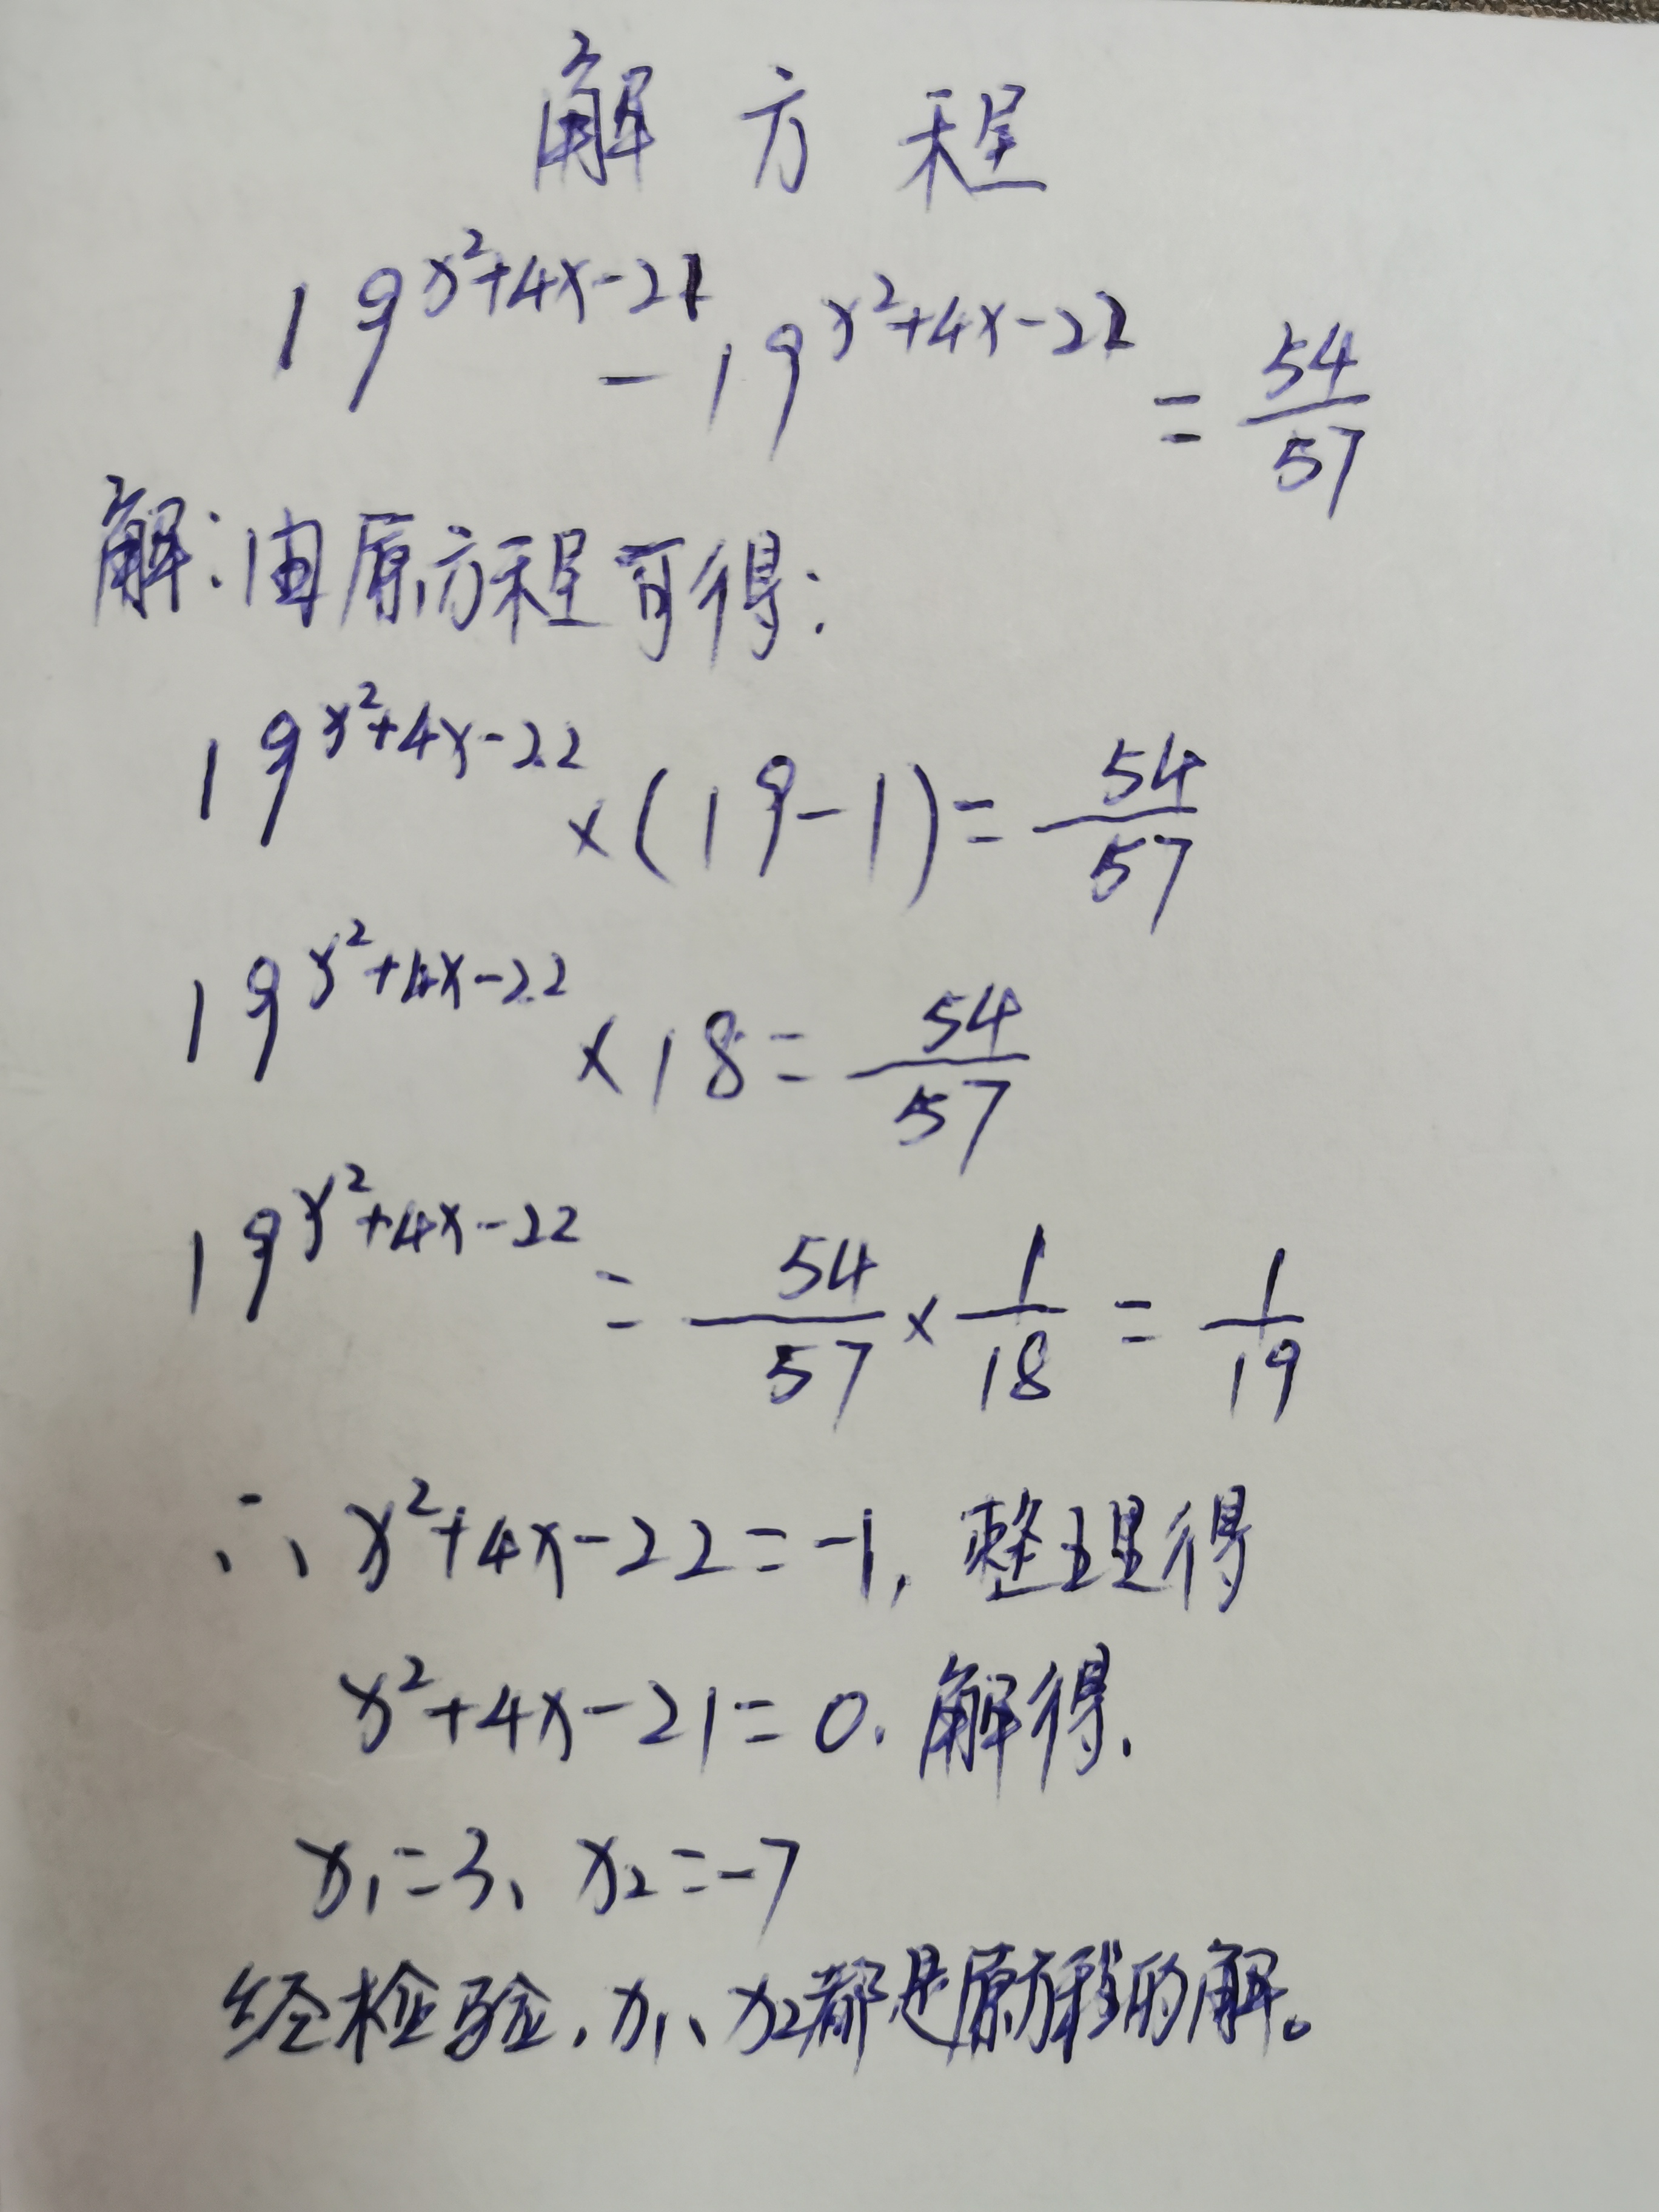 解方程
19^{x²+4x-21} - 19^{x²+4x-22} = 54/57
解:由原方程可得:
19^{x²+4x-22} × (19-1) = 54/57
19^{x²+4x-22} × 18 = 54/57
19^{x²+4x-22} = 54/57 × 1/18 = 1/19
∴ x²+4x-22=-1, 整理得
x²+4x-21=0. 解得.
x₁=3、x₂=-7
经检验, x₁、x₂都是原方程的解。